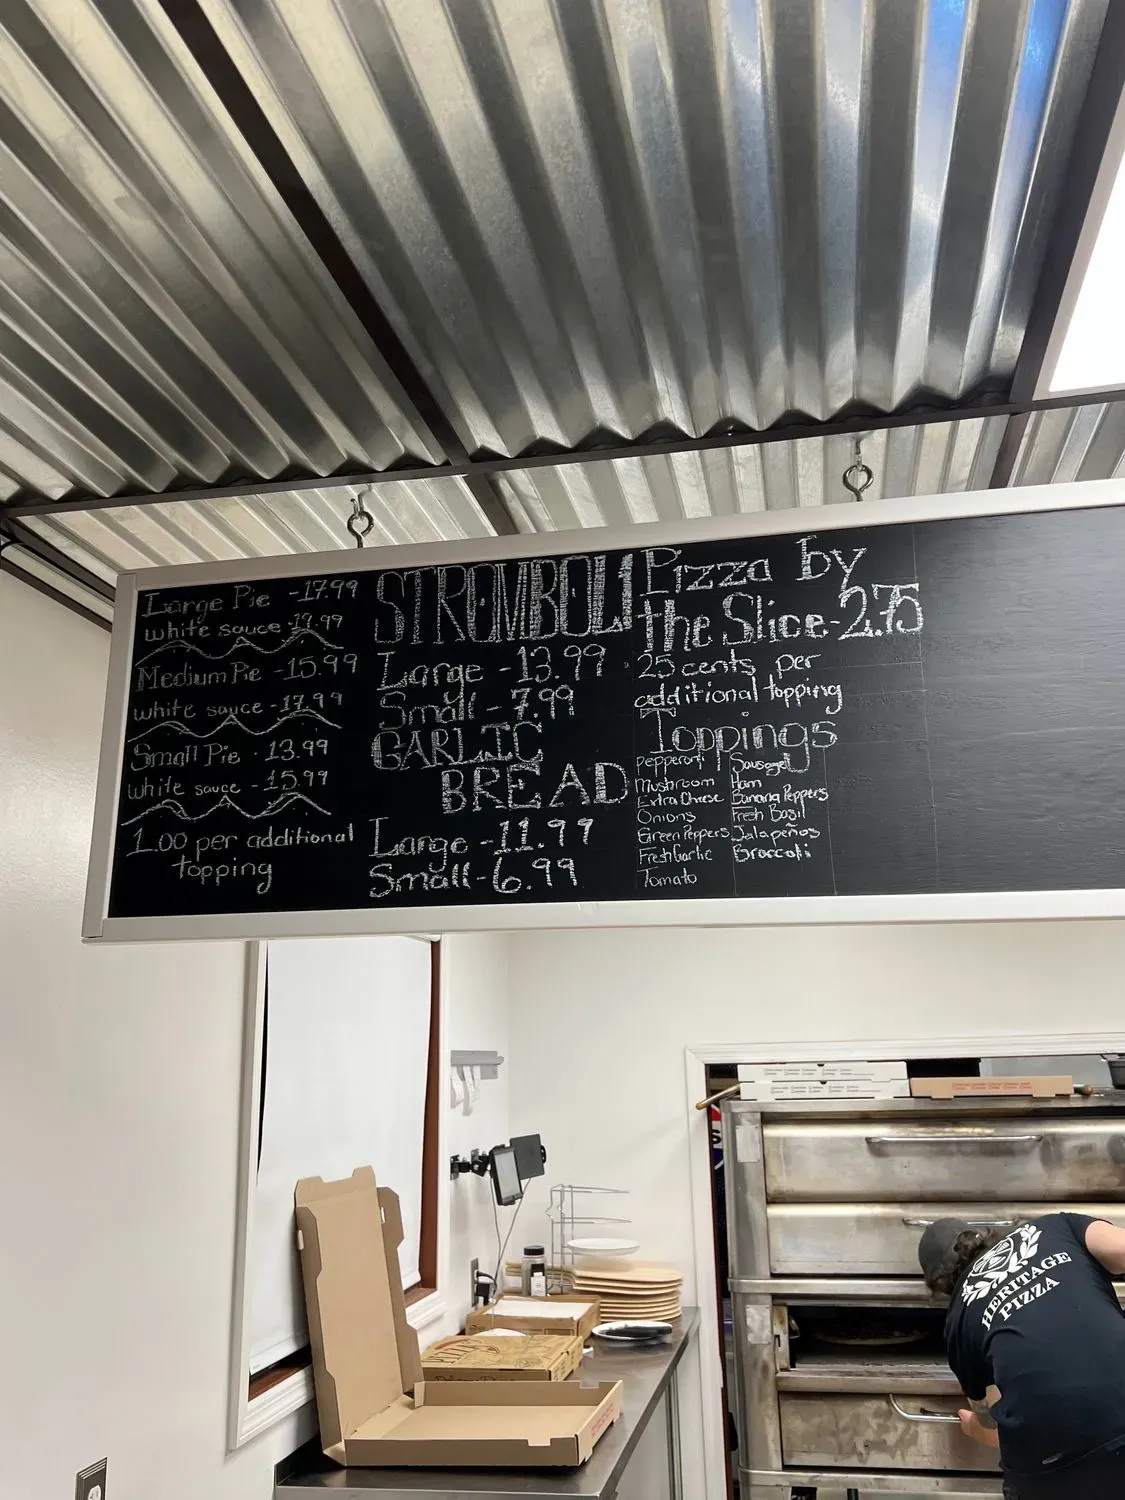 Large Pie - 17.99
white sauce - 19.99
Medium Pie - 15.99
white sauce - 17.99
Small Pie - 13.99
white sauce - 15.99
1.00 per additional
topping
STROMBOLI
Large - 13.99
Small - 7.99
GARLIC
BREAD
Large - 11.99
Small - 6.99
Pizza by
the Slice - 2.75
25 cents per
additional topping
Toppings
pepperoni
Mushroom
Extra Cheese
Onions
Green Peppers
Fresh Garlic
Tomato
Sausage
Ham
Banana Peppers
Fresh Basil
Jalapeños
Broccoli
HERITAGE
PIZZA